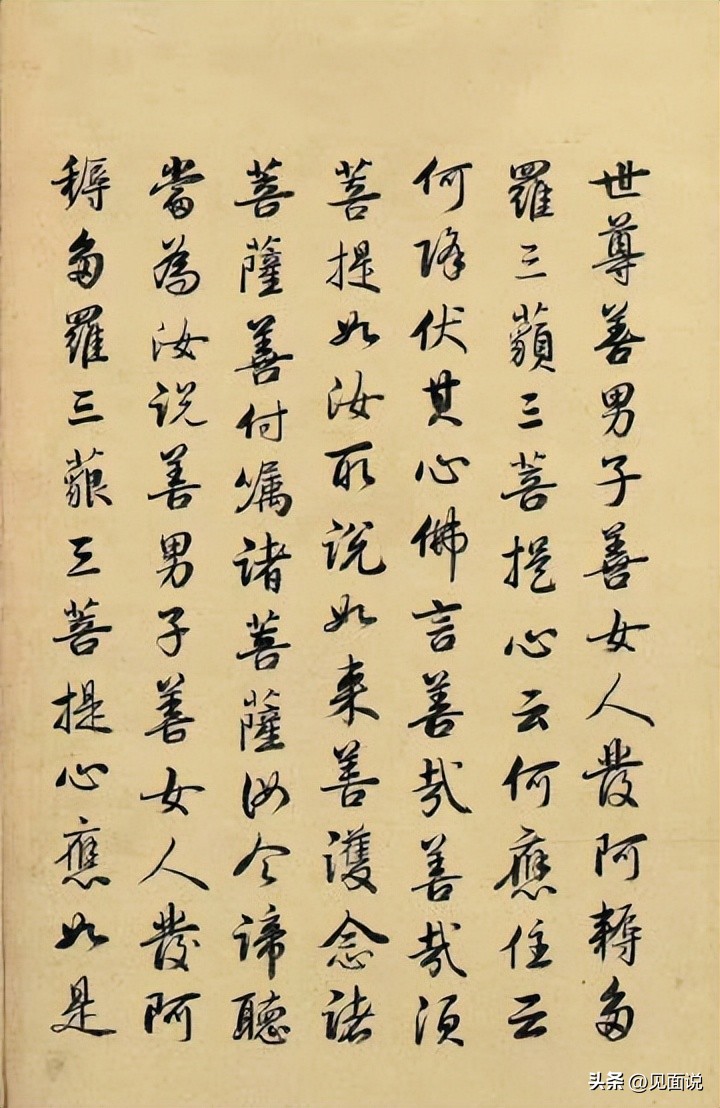 世尊善男子善女人發阿耨多
羅三藐三菩提心云何應住云
何降伏其心佛言善哉善哉須
菩提如汝所說如来善護念諸
菩薩善付嘱諸菩薩汝今諦聽
當為汝說善男子善女人發阿
耨多羅三藐三菩提心應如是
头条 @见面说